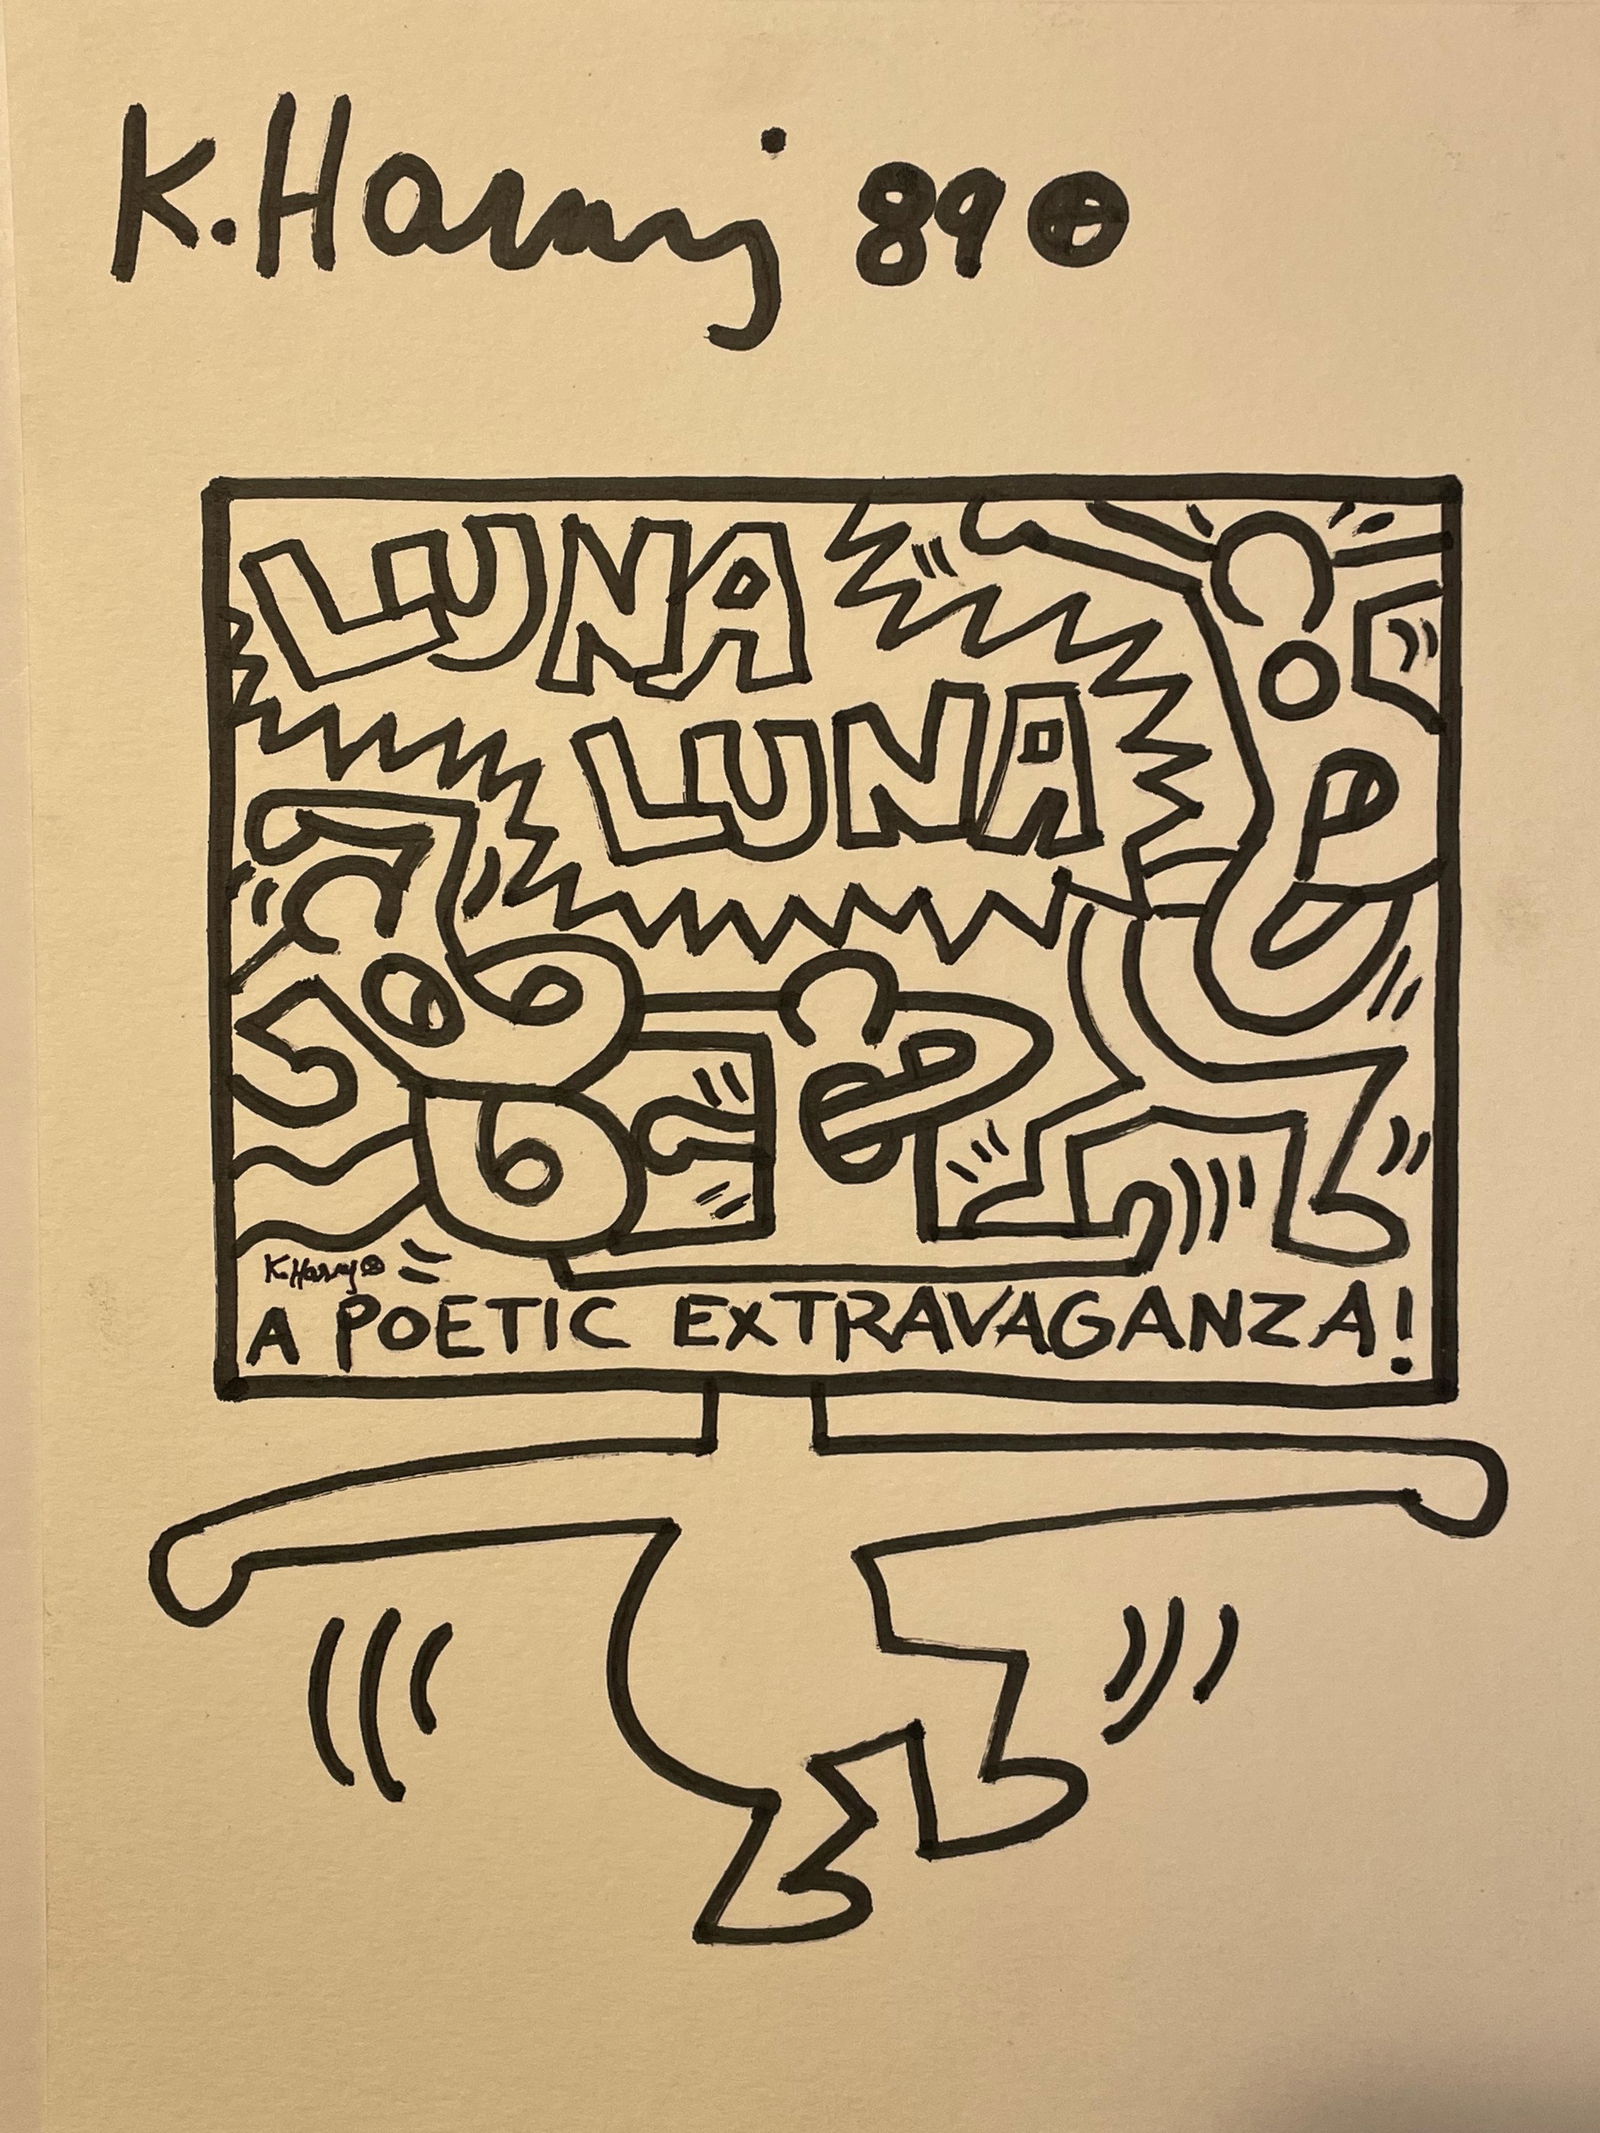 K. Haring 89
LUNA
LUNA
K. Haring
A POETIC EXTRAVAGANZA!